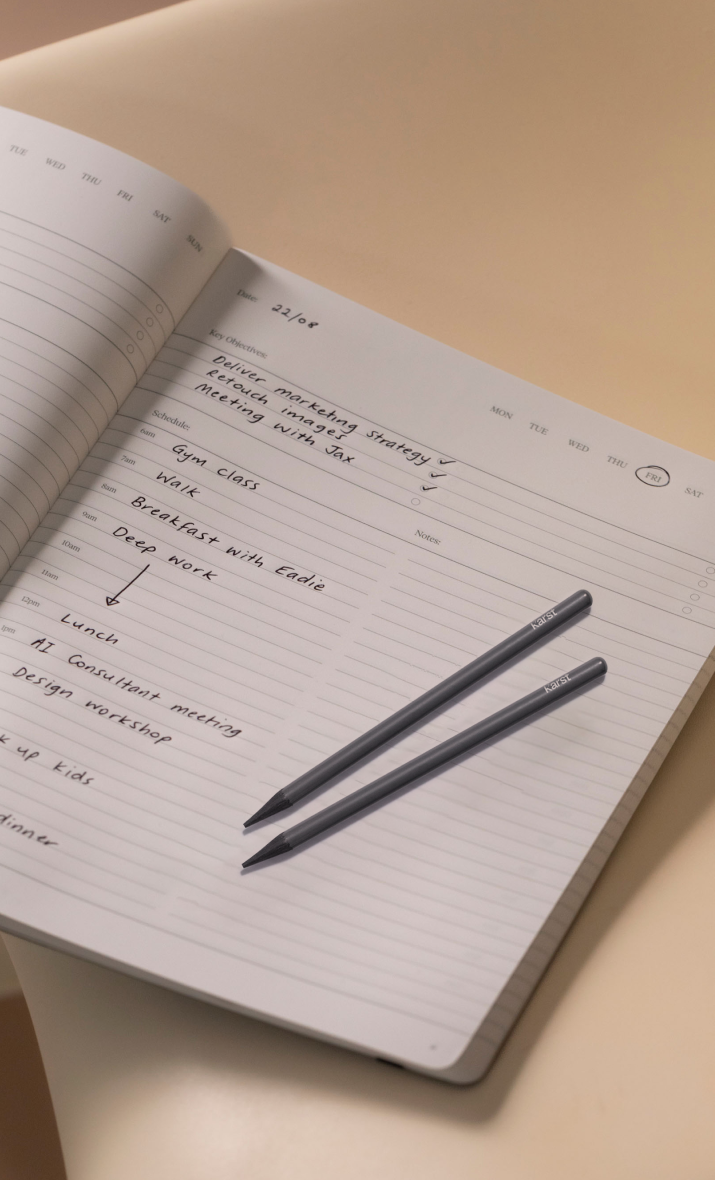 TUE WED THU FRI SAT SUN
Date: 22/08
MON TUE WED THU FRI SAT
Key Objectives:
Deliver marketing strategy ✓
Retouch images ✓
Meeting with Jax ✓
Schedule:
Notes:
6am Gym class
7am Walk
8am Breakfast with Eadie
9am Deep work
10am
11am
12pm Lunch
1pm AI Consultant meeting
Design workshop
k up kids
dinner
Karst
Karst